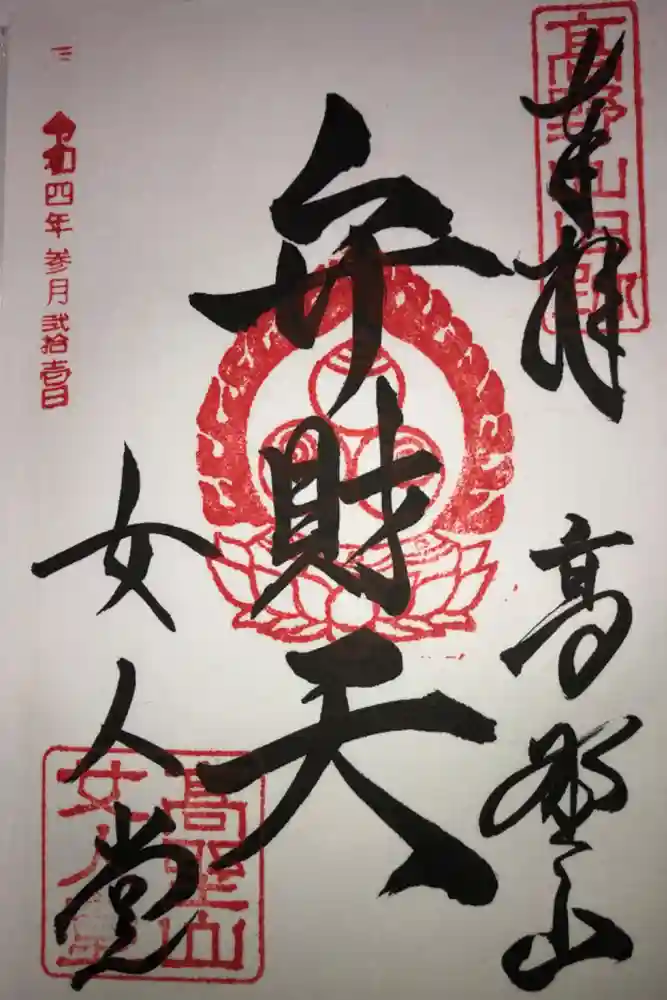 奉拝
高野山
弁財天
女人堂
令和四年参月弐拾壱日
高野山
女人堂